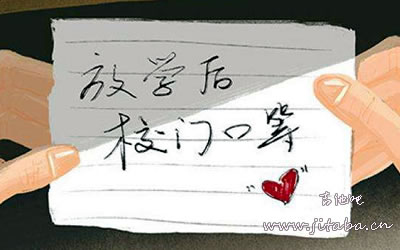 放学后
校门口等
吉他吧
www.jitaba.cn